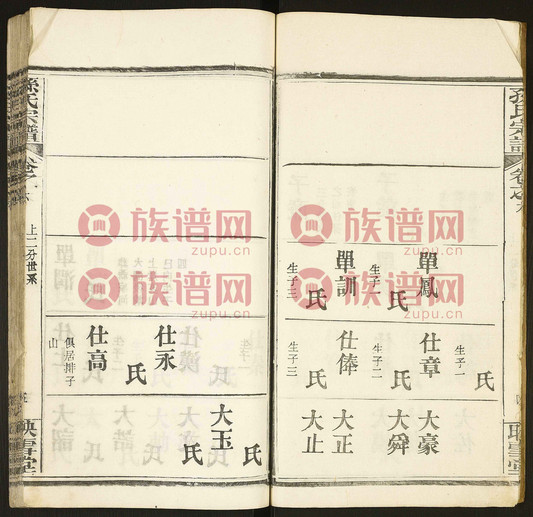 孫氏宗譜
卷之六
映雪堂
單鳳
氏
生子二
單訓
氏
生子三
仕章
氏
生子一
生子二
仕俸
氏
生子三
大豪
大舜
大正
大止
仕永
氏
仕高
氏
俱居排子
山
大玉
氏
氏
孫氏宗譜
卷之六
上二分世系
映雪堂
族谱网
zupu.cn
族谱网
zupu.cn
族谱网
zupu.cn
族谱网
zupu.cn